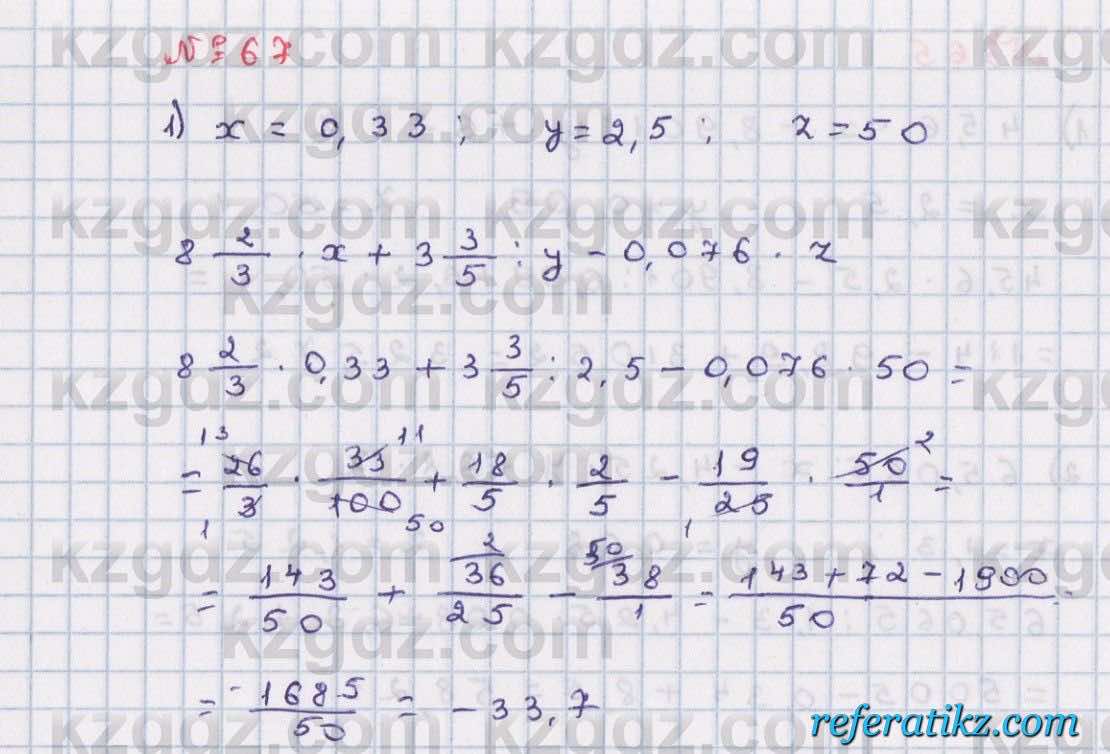 № 67
1) x = 0,33 ; y = 2,5 ; z = 50
8 2/3 · x + 3 3/5 : y - 0,076 · z
8 2/3 · 0,33 + 3 3/5 : 2,5 - 0,076 · 50 =
= 26/3 · 33/100 + 18/5 · 2/5 - 19/25 · 50/1 =
= 143/50 + 36/25 - 38/1 = (143 + 72 - 1900)/50 =
= -1685/50 = -33,7
kzgdz.com
referatikz.com